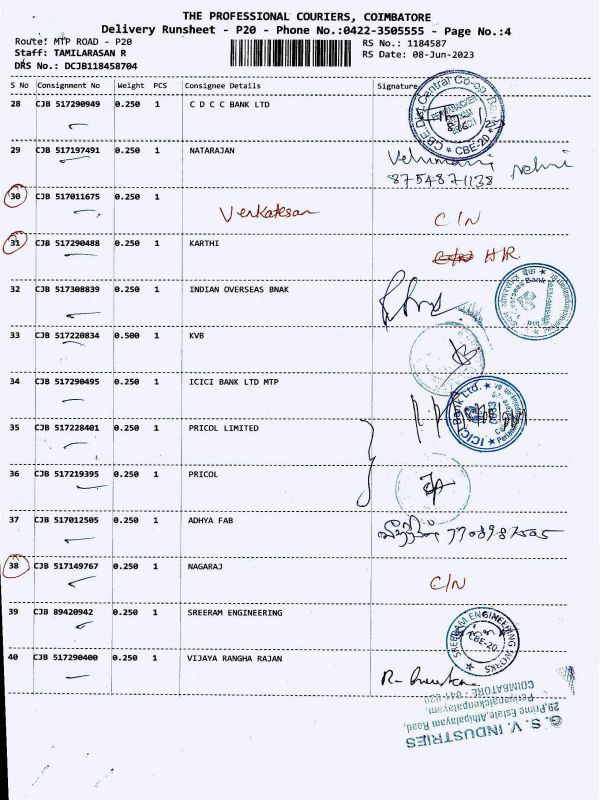 THE PROFESSIONAL COURIERS, COIMBATORE
Delivery Runsheet - P20 - Phone No.:0422-3505555 - Page No.:4
Route: MTP ROAD - P20
RS No.: 1184587
Staff: TAMILARASAN R
RS Date: 08-Jun-2023
DRS No.: DCJB118458704
S No Consignment No Weight PCS Consignee Details Signature
28 CJB 517290949 0.250 1 C D C C BANK LTD
CBE Dist. Central Co-op.
CBE-20
29 CJB 517197491 0.250 1 NATARAJAN
8754871138
30 CJB 517011675 0.250 1
Venkatesan C/N
31 CJB 517290488 0.250 1 KARTHI
H/R
32 CJB 517308839 0.250 1 INDIAN OVERSEAS BNAK
Overseas Bank
33 CJB 517220834 0.500 1 KVB
34 CJB 517290495 0.250 1 ICICI BANK LTD MTP
ICICI Bank Ltd.
35 CJB 517228401 0.250 1 PRICOL LIMITED
36 CJB 517219395 0.250 1 PRICOL
37 CJB 517012505 0.250 1 ADHYA FAB
38 CJB 517149767 0.250 1 NAGARAJ
C/N
39 CJB 89420942 0.250 1 SREERAM ENGINEERING
SREERAM ENGINEERING WORKS
CBE-20.
40 CJB 517290400 0.250 1 VIJAYA RANGHA RAJAN
G. S. V. INDUSTRIES
29, Prime Estate, Athipalayam Road,
Periyanaickenpalayam,
COIMBATORE - 641 020